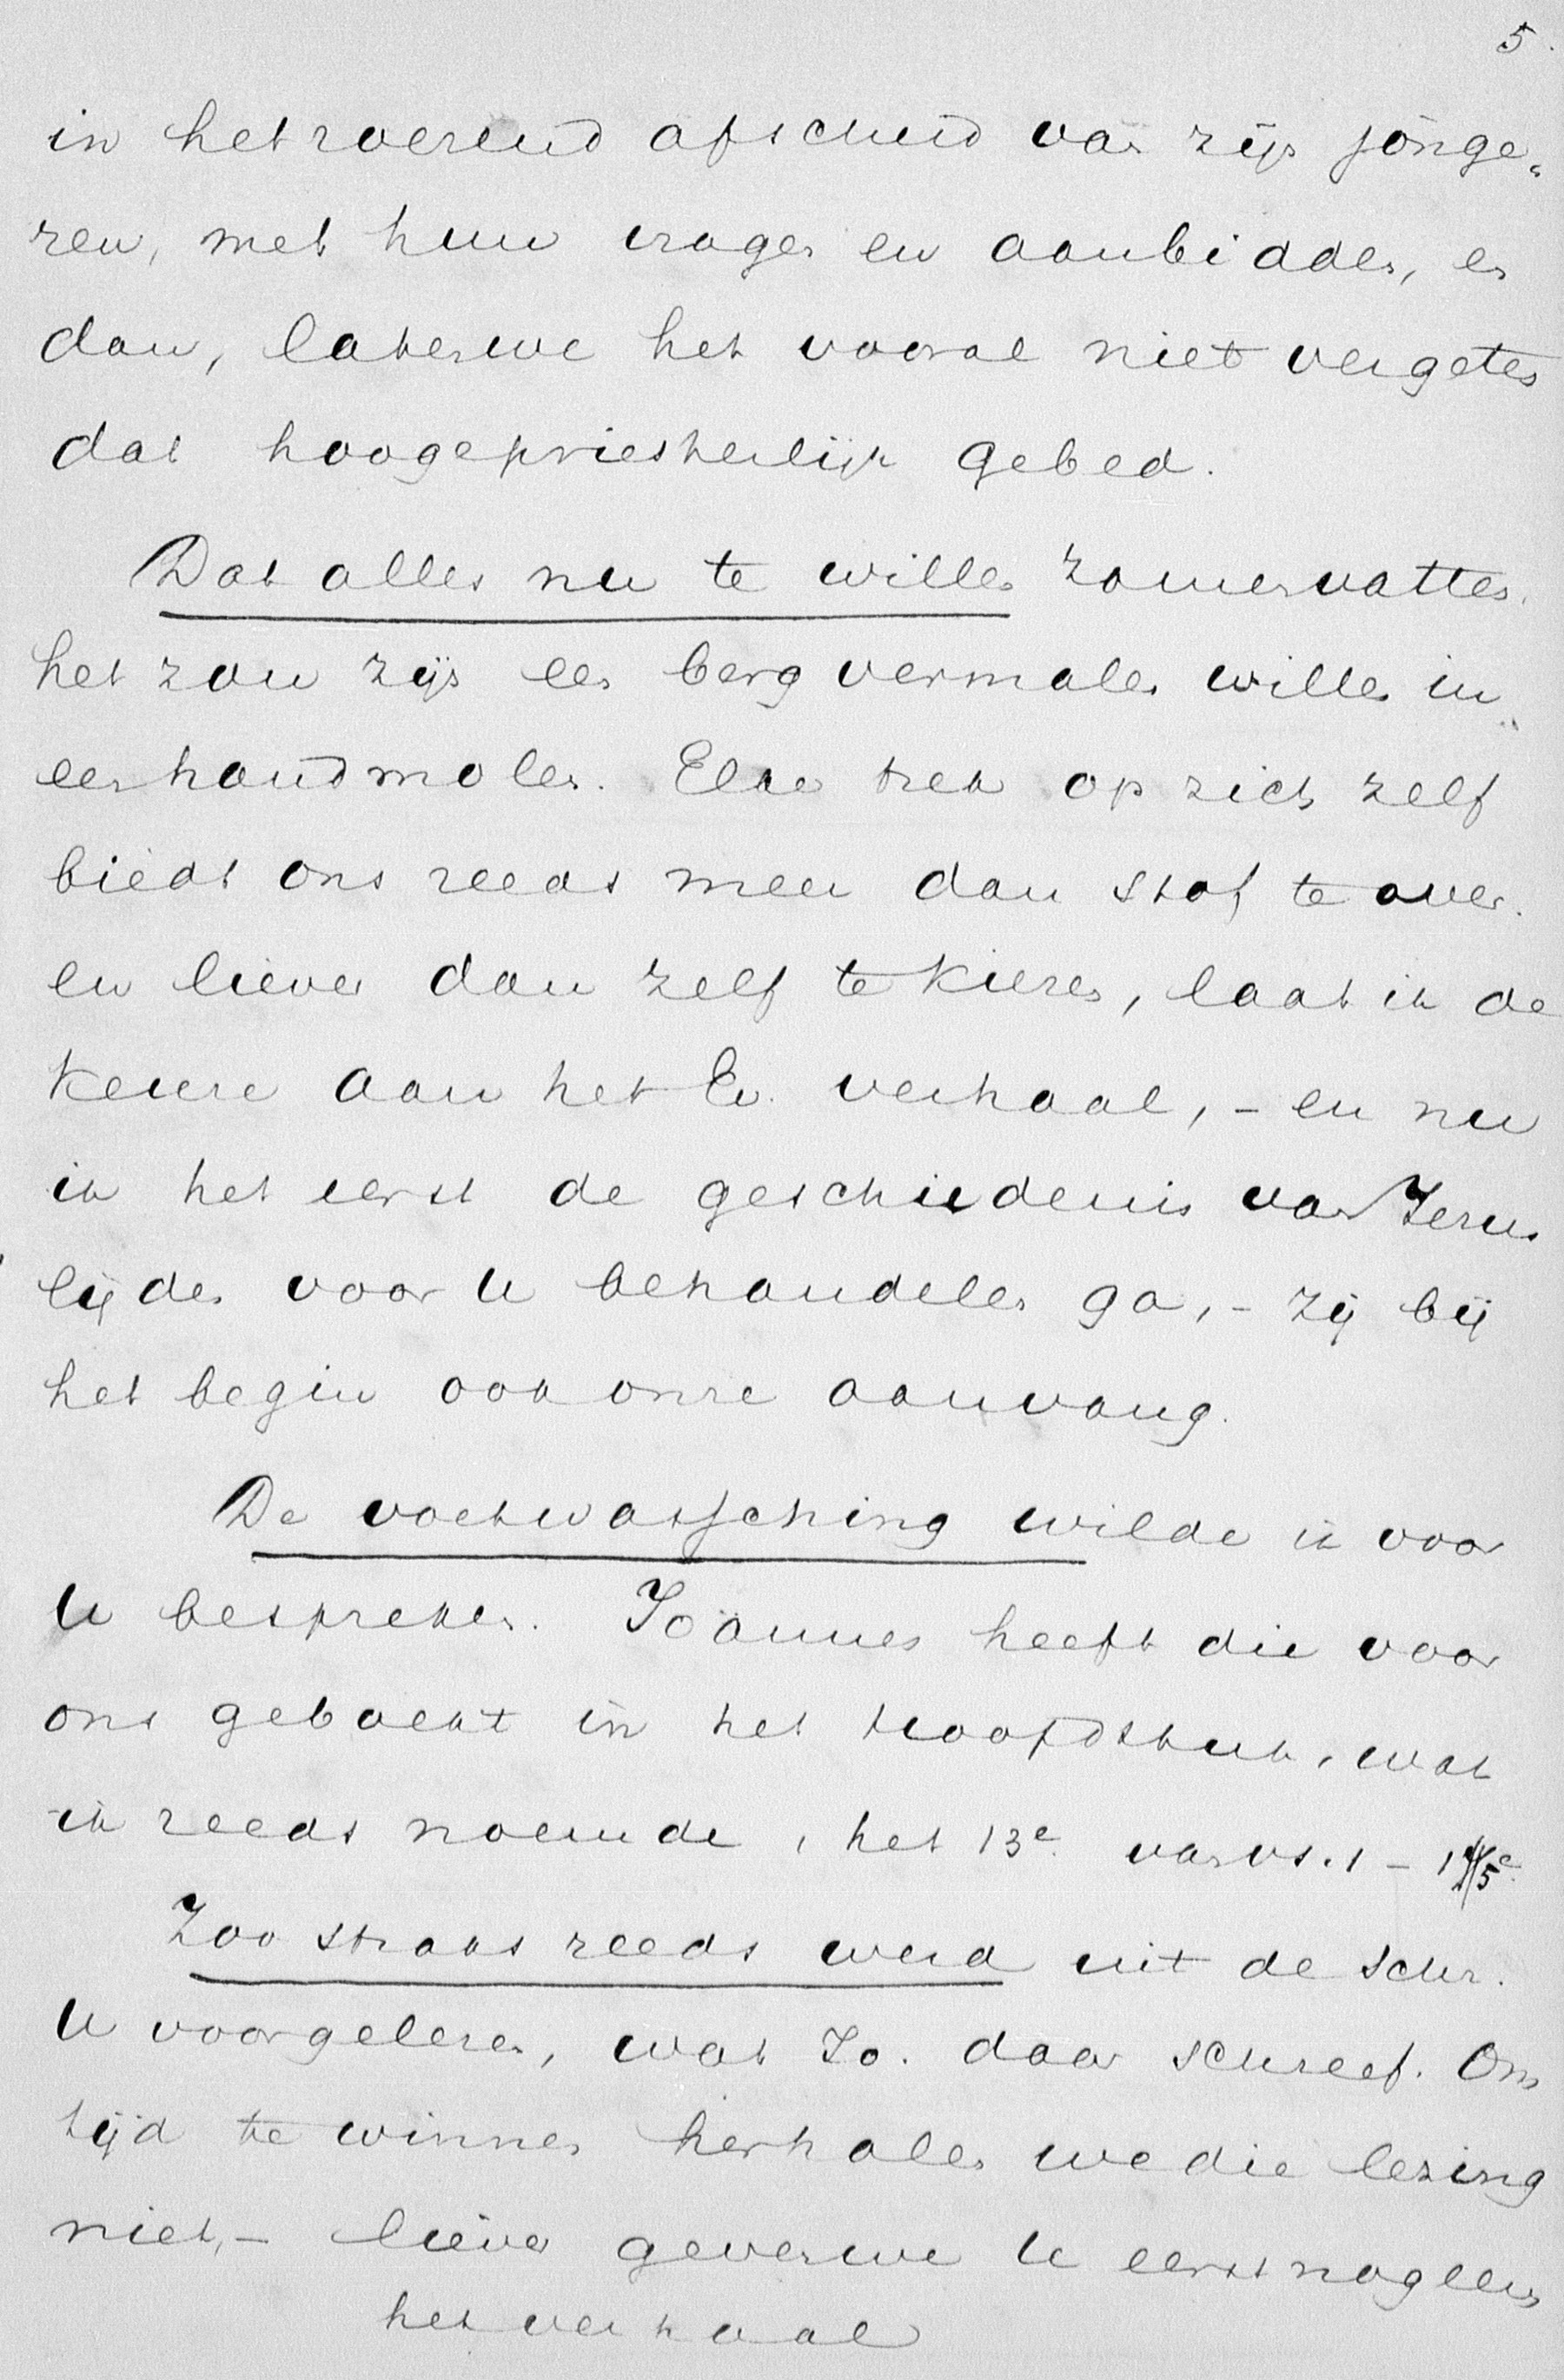 5.
in het roerend afscheid van zijn jonge-
ren, met hun vragen en aanbidden, en
dan, laten we het vooral niet vergeten
dat hoogepriesterlijk gebed.
Dat alles nu te willen zamenvatten,
het zou zijn een berg vermalen willen in
een handmolen. Elke trek op zich zelf
biedt ons reeds meer dan stof te over.
en liever dan zelf te kiezen, laat ik de
keuze aan het Ev. verhaal, - en nu
ik het eerst de geschiedenis van Jezus
lijden voor U behandelen ga, - zij bij
het begin ook onze aanvang.
De voetwassching wilde ik voor
U bespreken. Joännes heeft die voor
ons geboekt in het hoofdstuk, wat
ik reeds noemde, het 13e van vs. 1 - 15e
Zoo straks reeds werd uit de schr.
U voorgelezen, wat Jo. daar schreef. Om
tijd te winnen herhalen we die lezing
niet, - liever geven we U eerst nog eens
het verhaal